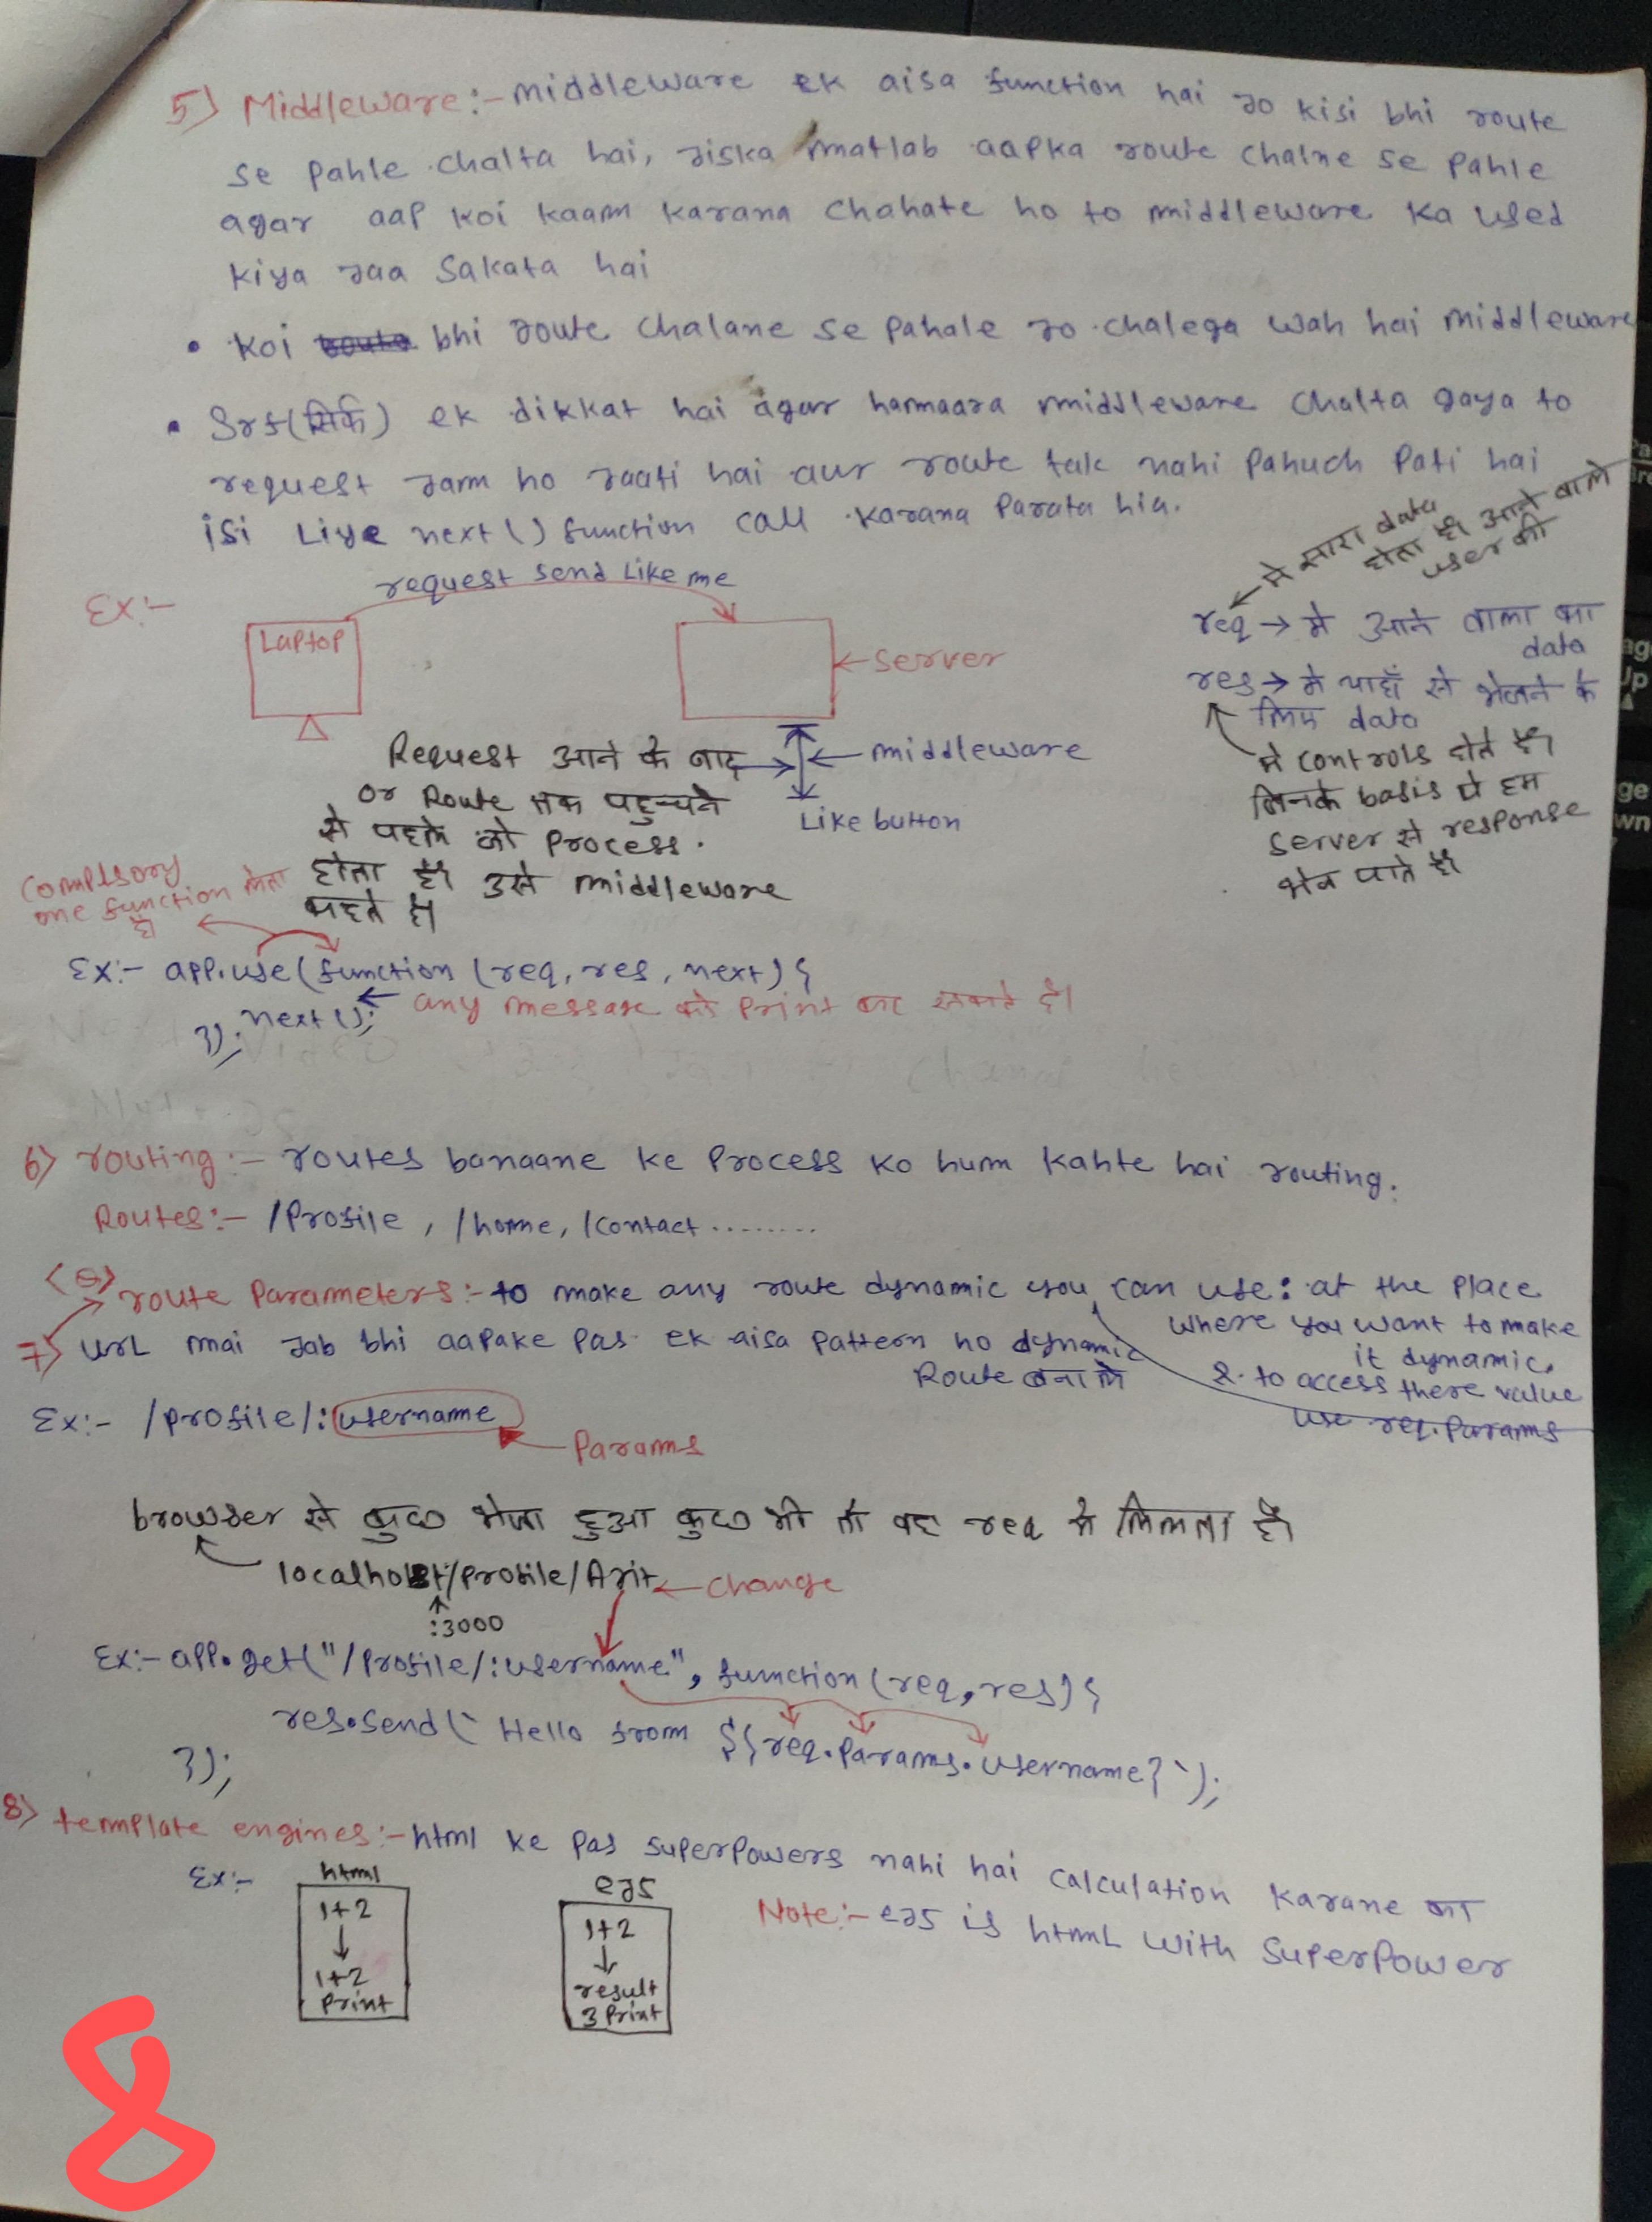 5) Middleware:- middleware ek aisa function hai jo kisi bhi route
se pahle chalta hai, jiska matlab aapka route chalne se pahle
agar aap koi kaam karana chahate ho to middleware ka used
kiya jaa sakata hai
• koi bhi route chalane se pahale jo chalega wah hai middleware
• Srf(सिर्फ) ek dikkat hai agar hamaara middleware chalta gaya to
request jam ho jaati hai aur route tak nahi pahuch pati hai
isi liye next() function call karana parata hia.
Ex:-
request send like me
Laptop
server
Request आने के बाद
or Route तक पहुचने
से पहले जो process.
होता है। उसे middleware
कहते है।
middleware
Like button
मे सारा data
होता है। आने वाले
user की
req → मे आने वाला का
data
res → मे यहाँ से भेजने के
लिए data
मे controls होते है।
जिनके basis पे हम
server से response
भेज पाते है।
complsory
one function लेता
है
Ex:- app.use(function (req, res, next){
next(); any message को print कर सकते है।
});
6) routing:- routes banaane ke process ko hum kahte hai routing.
Routes:- /profile, /home, /contact ........
route parameters:- to make any route dynamic you can use : at the place
where you want to make
it dynamic.
&. to access there value
use req.params
7) URL mai jab bhi aapake pas ek aisa pattern ho dynamic
Route बनाले
Ex:- /profile/:username
params
browser से कुछ भेजा हुआ कुछ भी तो वह req मे मिलता है।
localhost/profile/Arit change
:3000
Ex:- app.get("/profile/:username", function(req,res){
res.send(` Hello from ${req.params.username}`);
});
8) template engines:- html ke pas superpowers nahi hai calculation karane का
Ex:-
html
1+2
↓
1+2
print
ejs
1+2
↓
result
3 print
Note:- ejs is html with superpower
8